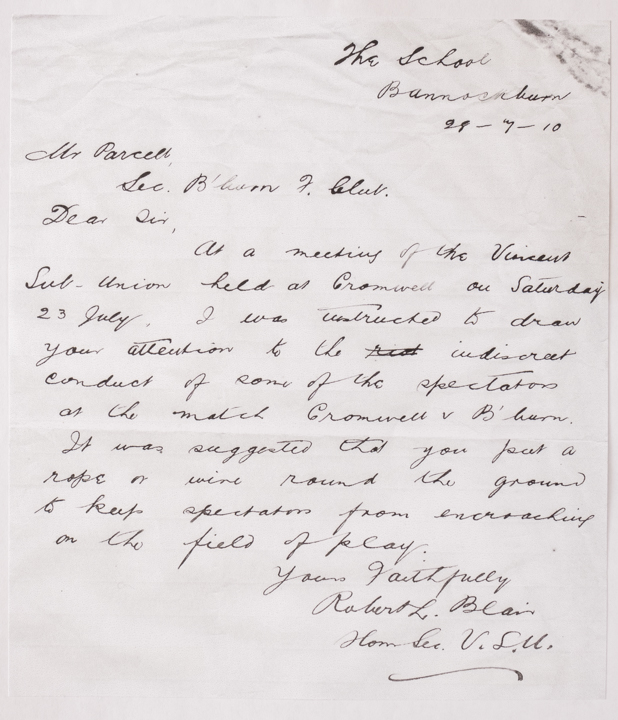 The School
Bannockburn
29-7-10
Mr Parcell,
Sec. B'burn F. Club.
Dear Sir,
At a meeting of the Vincent
Sub-Union held at Cromwell on Saturday
23 July. I was instructed to draw
your attention to the indiscreet
conduct of some of the spectators
at the match Cromwell v B'burn.
It was suggested that you put a
rope or wire round the ground
to keep spectators from encroaching
on the field of play.
Yours Faithfully
Robert L. Blair
Hon Sec. V.S.U.